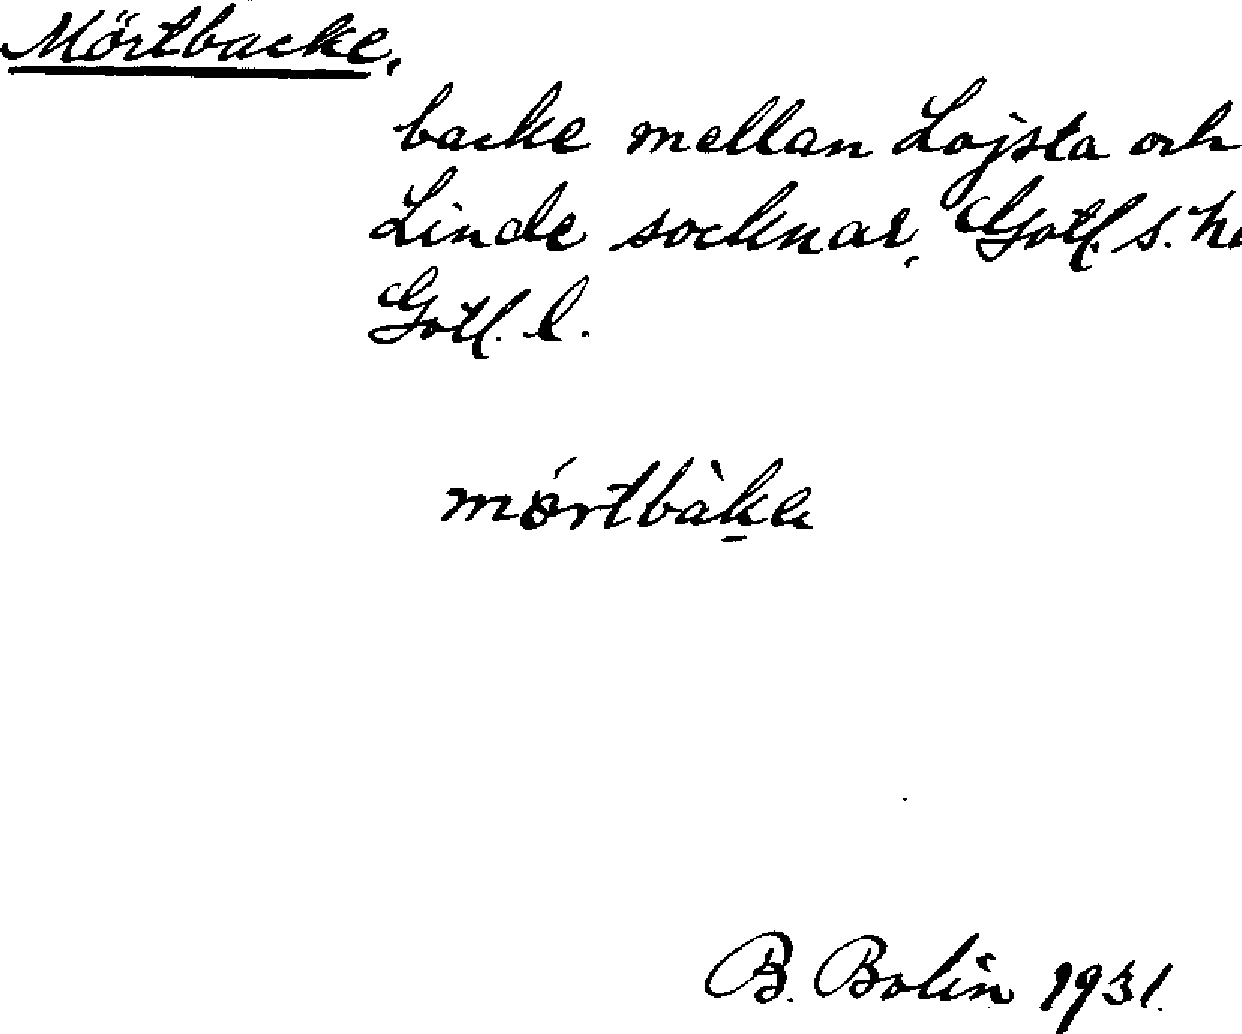 Mörtbacke,
backe mellan Lojsta och
Linde socknar, Gotl. s. h
Gotl. l.
mörtbàkε
B. Bolin 1931.